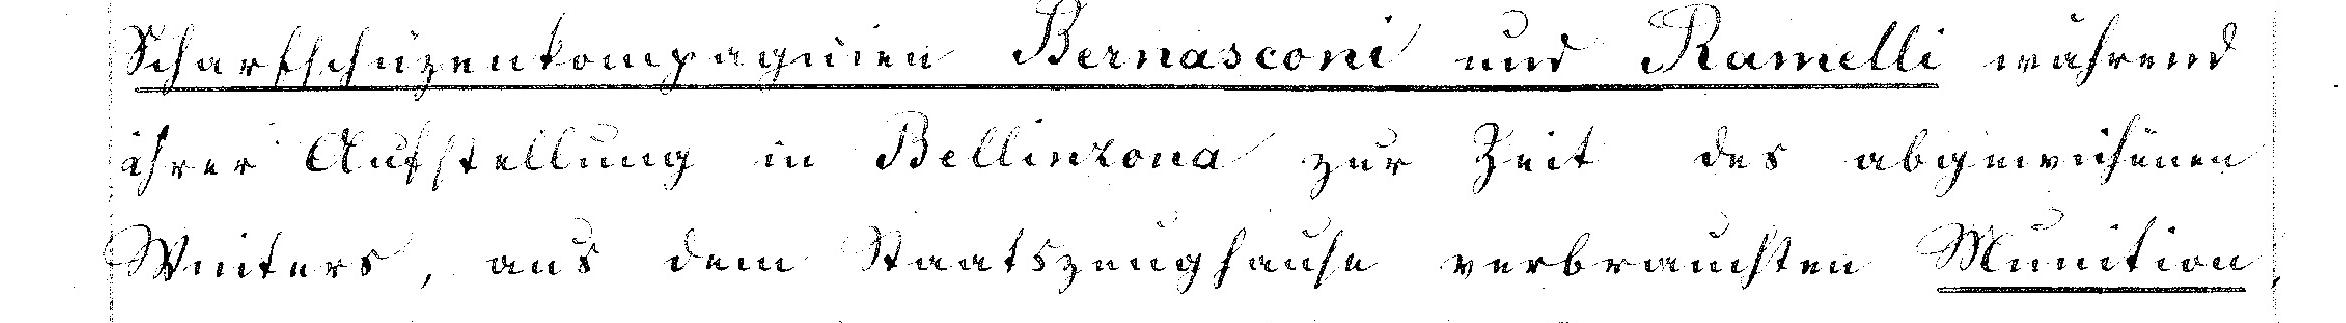 Scharfschüzenkompagnien Bernasconi und Ramelli während
ihrer Aufstellung in Bellinzona zur Zeit des abgewichenen
Winters, aus dem Staatszeughause verbrauchten Munition,